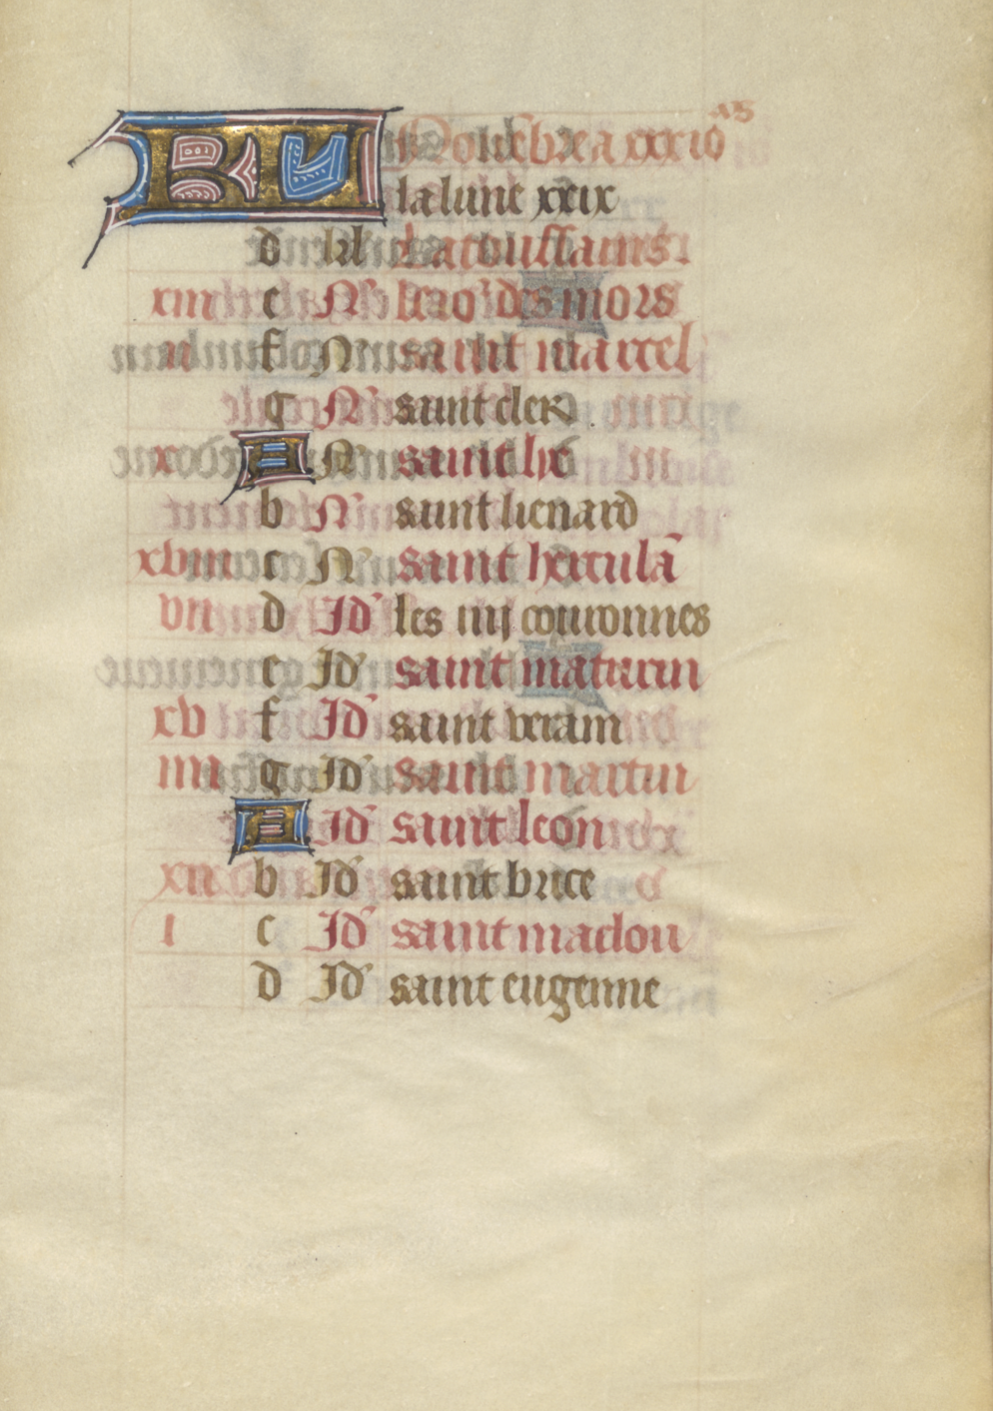 KL Nouēbre a xxx io^rs
la lune xxix
d kl La toussains
xiii e N' le io' des mors
ii f N' saint marcel
g N' saint cler
x A N' saint lie
b N' saint lienard
xviii c N' saint herculā
vii d Id' les iiij couronnes
e Id' saint maturin
xv f Id' saint veram
iiii g Id' saint martin
A Id' saint leon
xii b Id' saint brice
i c Id' saint maclou
d Id' saint eugenne